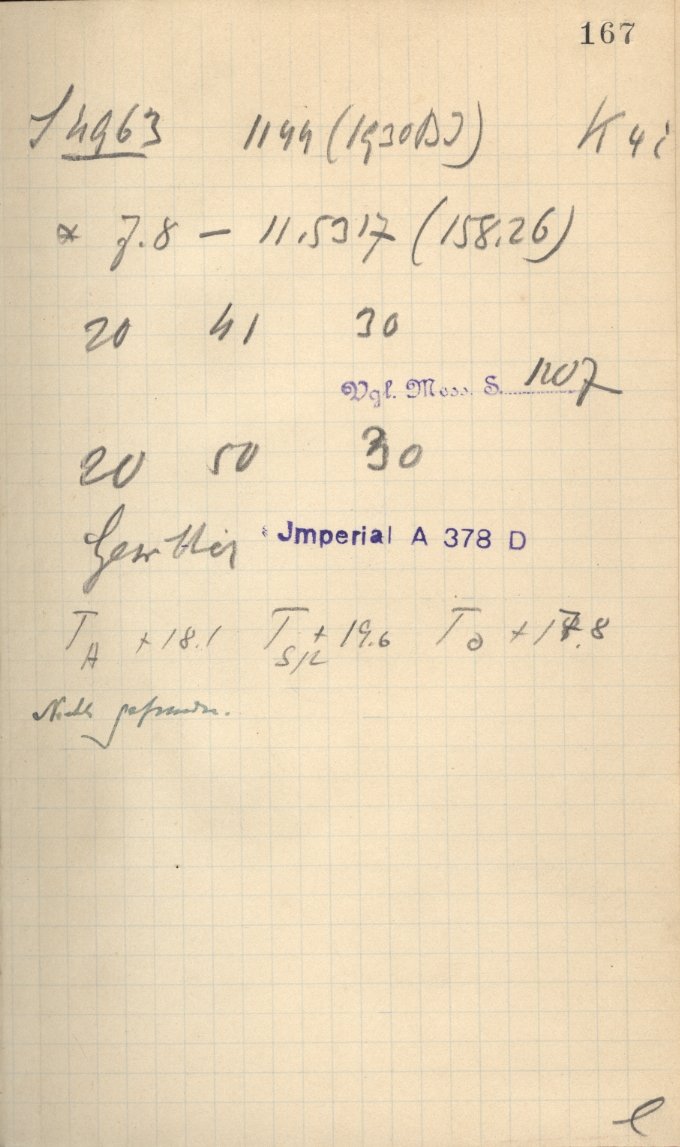 167
J 4963 1144 (1930 BJ) K 4 i
* 7.8 — 11.5317 (158.26)
20 41 30
Vgl. Mess. S. 1207
20 50 30
Gewitter Jmperial A 378 D
T A + 18.1 T Sp + 19.6 T O + 17.8
Nicht gefunden.